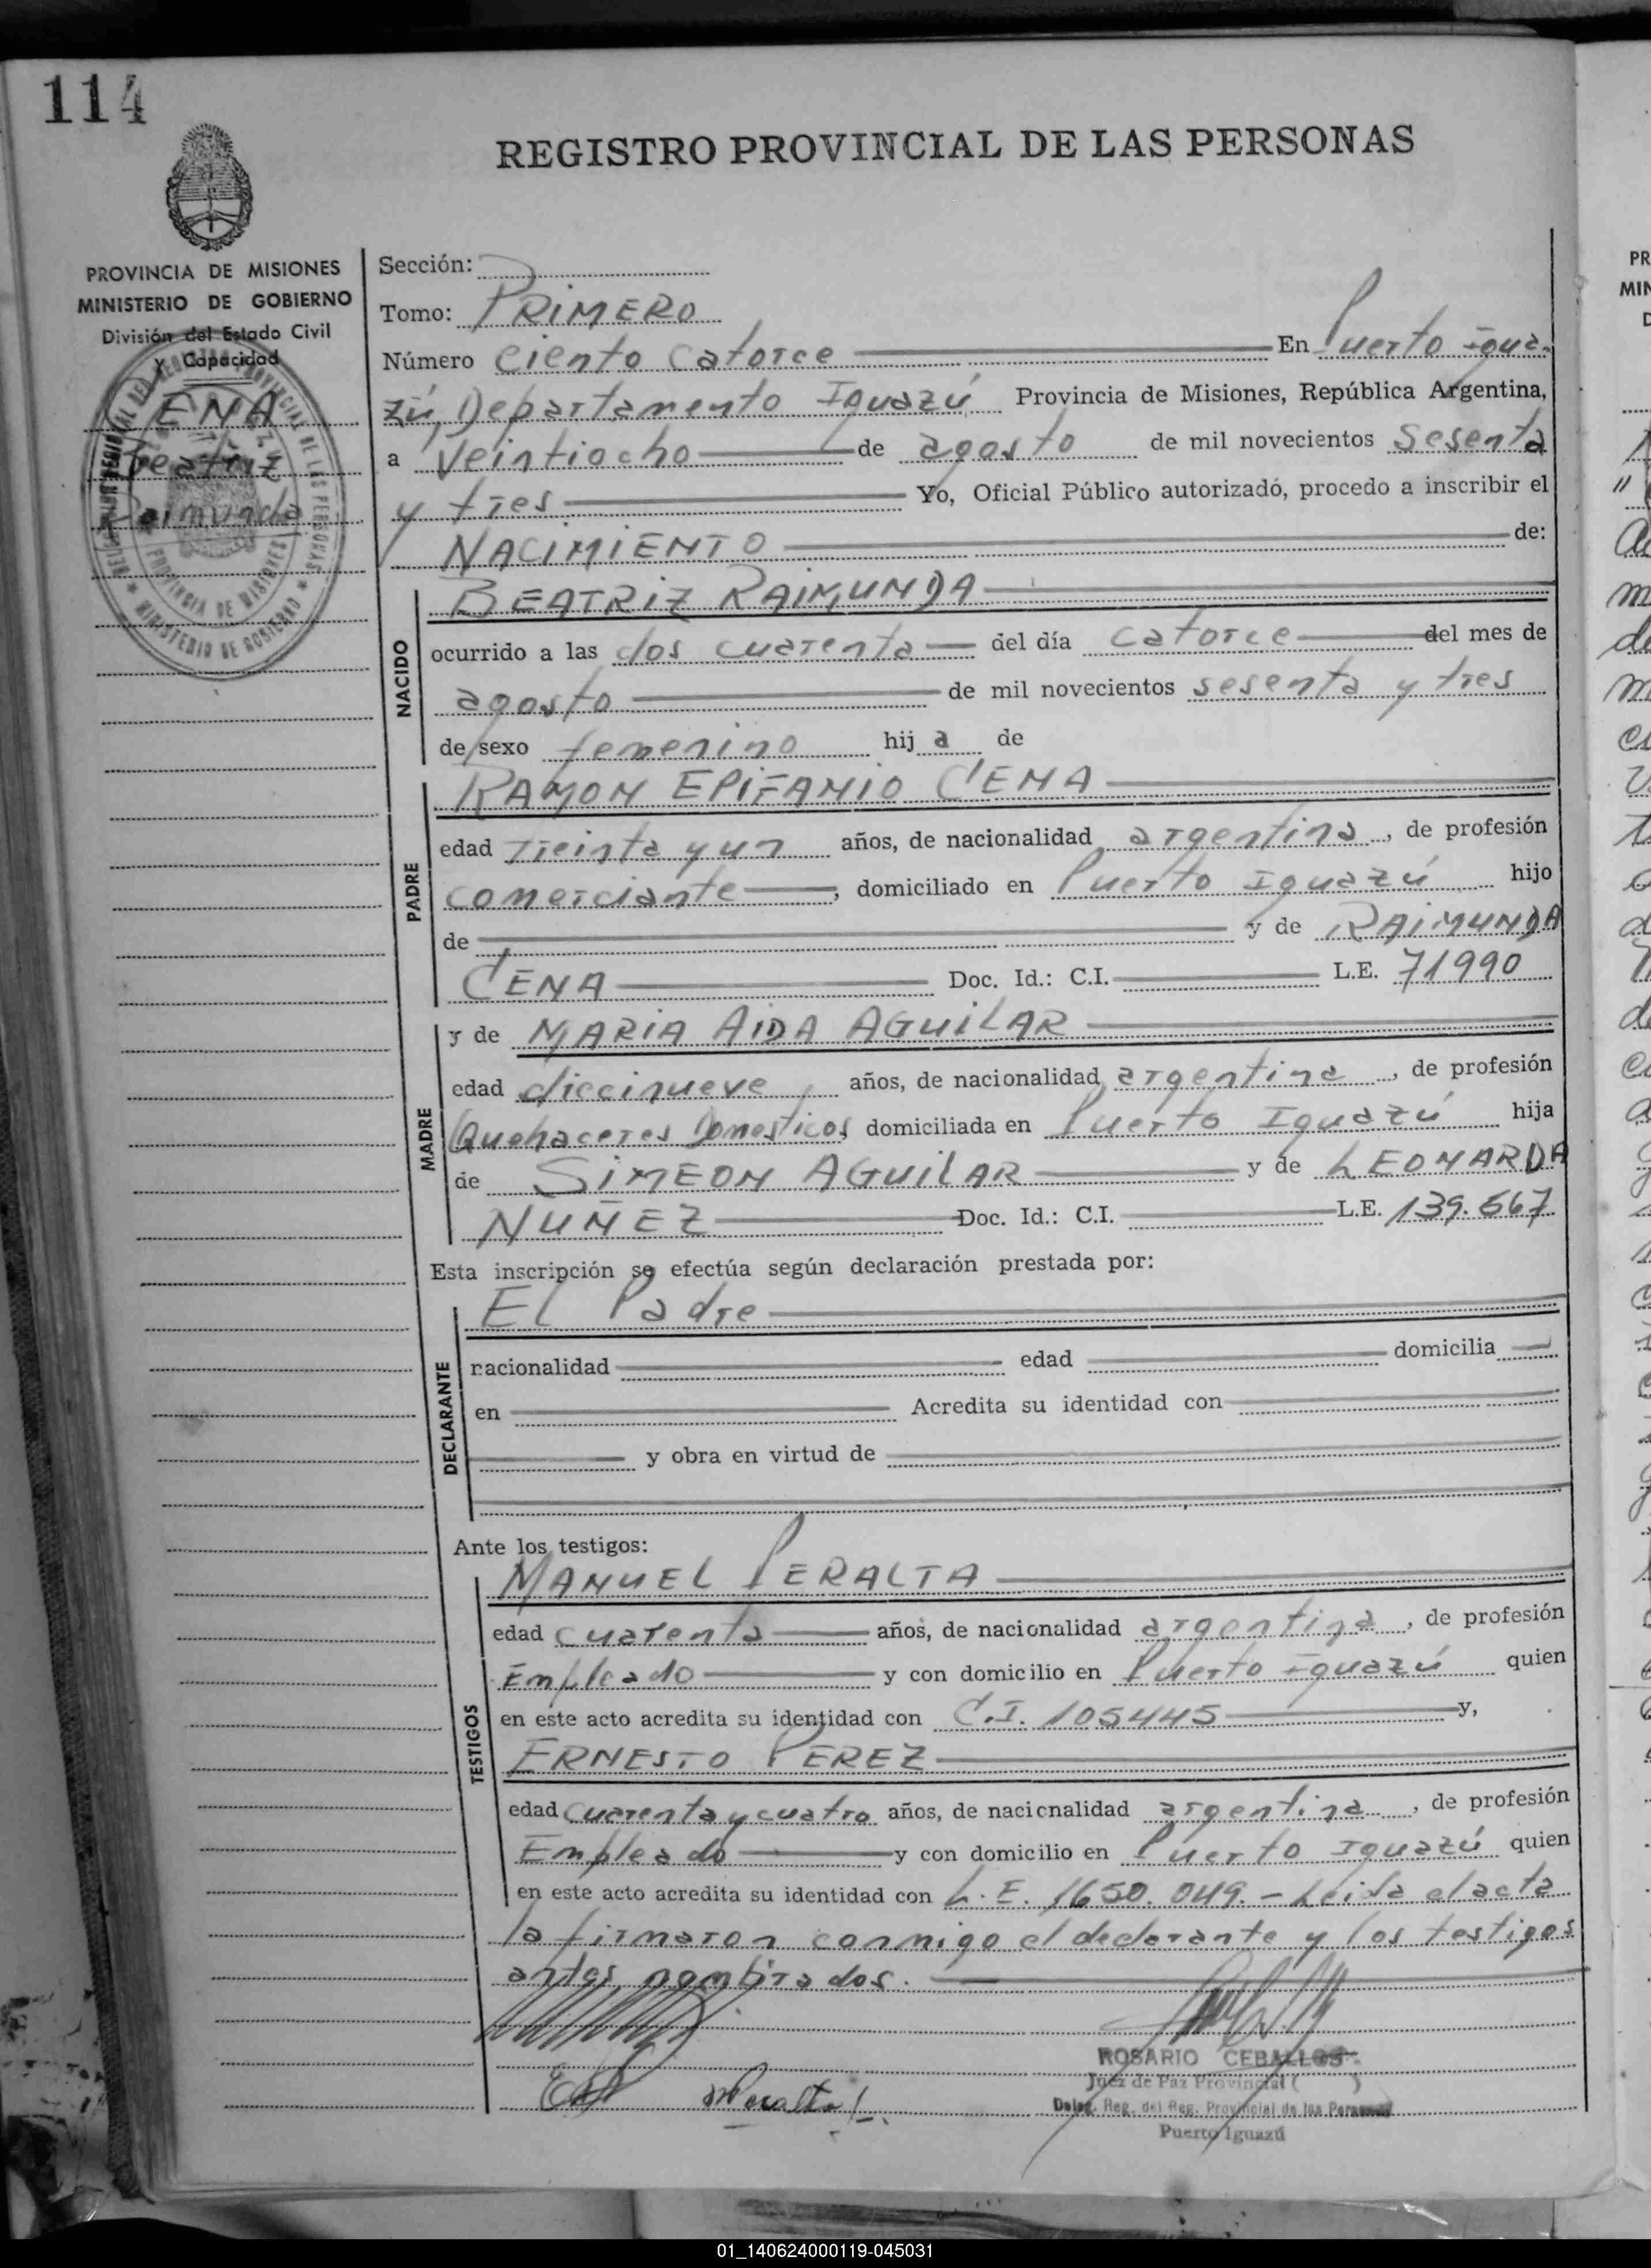 114
REGISTRO PROVINCIAL DE LAS PERSONAS
PROVINCIA DE MISIONES
MINISTERIO DE GOBIERNO
División del Estado Civil
y Capacidad
ENA
Beatriz
Raimunda
Sección:
Tomo: PRIMERO
Número ciento catorce En Puerto Igua-
zú, Departamento Iguazú Provincia de Misiones, República Argentina,
a Veintiocho de agosto de mil novecientos sesenta
y tres Yo, Oficial Público autorizado, procedo a inscribir el
NACIMIENTO de:
NACIDO
BEATRIZ RAIMUNDA
ocurrido a las dos cuarenta del día catorce del mes de
agosto de mil novecientos sesenta y tres
de sexo femenino hija de
PADRE
RAMON EPIFANIO CENA
edad Treinta y un años, de nacionalidad argentina, de profesión
comerciante, domiciliado en Puerto Iguazú hijo
de y de RAIMUNDA
CENA Doc. Id.: C.I. L.E. 71990
MADRE
y de MARIA AIDA AGUILAR
edad diecinueve años, de nacionalidad argentina, de profesión
Quehaceres Domesticos domiciliada en Puerto Iguazú hija
de SIMEON AGUILAR y de LEONARDA
NUÑEZ Doc. Id.: C.I. L.E. 139.667
Esta inscripción se efectúa según declaración prestada por:
DECLARANTE
El Padre
nacionalidad edad domicilia
en Acredita su identidad con
y obra en virtud de
Ante los testigos:
TESTIGOS
MANUEL PERALTA
edad cuarenta años, de nacionalidad argentina, de profesión
Empleado y con domicilio en Puerto Iguazú quien
en este acto acredita su identidad con C.I. 105445 y,
ERNESTO PEREZ
edad cuarenta y cuatro años, de nacionalidad argentina, de profesión
Empleado y con domicilio en Puerto Iguazú quien
en este acto acredita su identidad con L.E. 1650.049.- Leida el acta
la firmaron conmigo el declarante y los testigos
antes nombrados.
MPeralta
ROSARIO CEBALLOS
Juez de Paz Provincial ( )
Deleg. Reg. del Reg. Provincial de las Personas
Puerto Iguazú
01_140624000119-045031